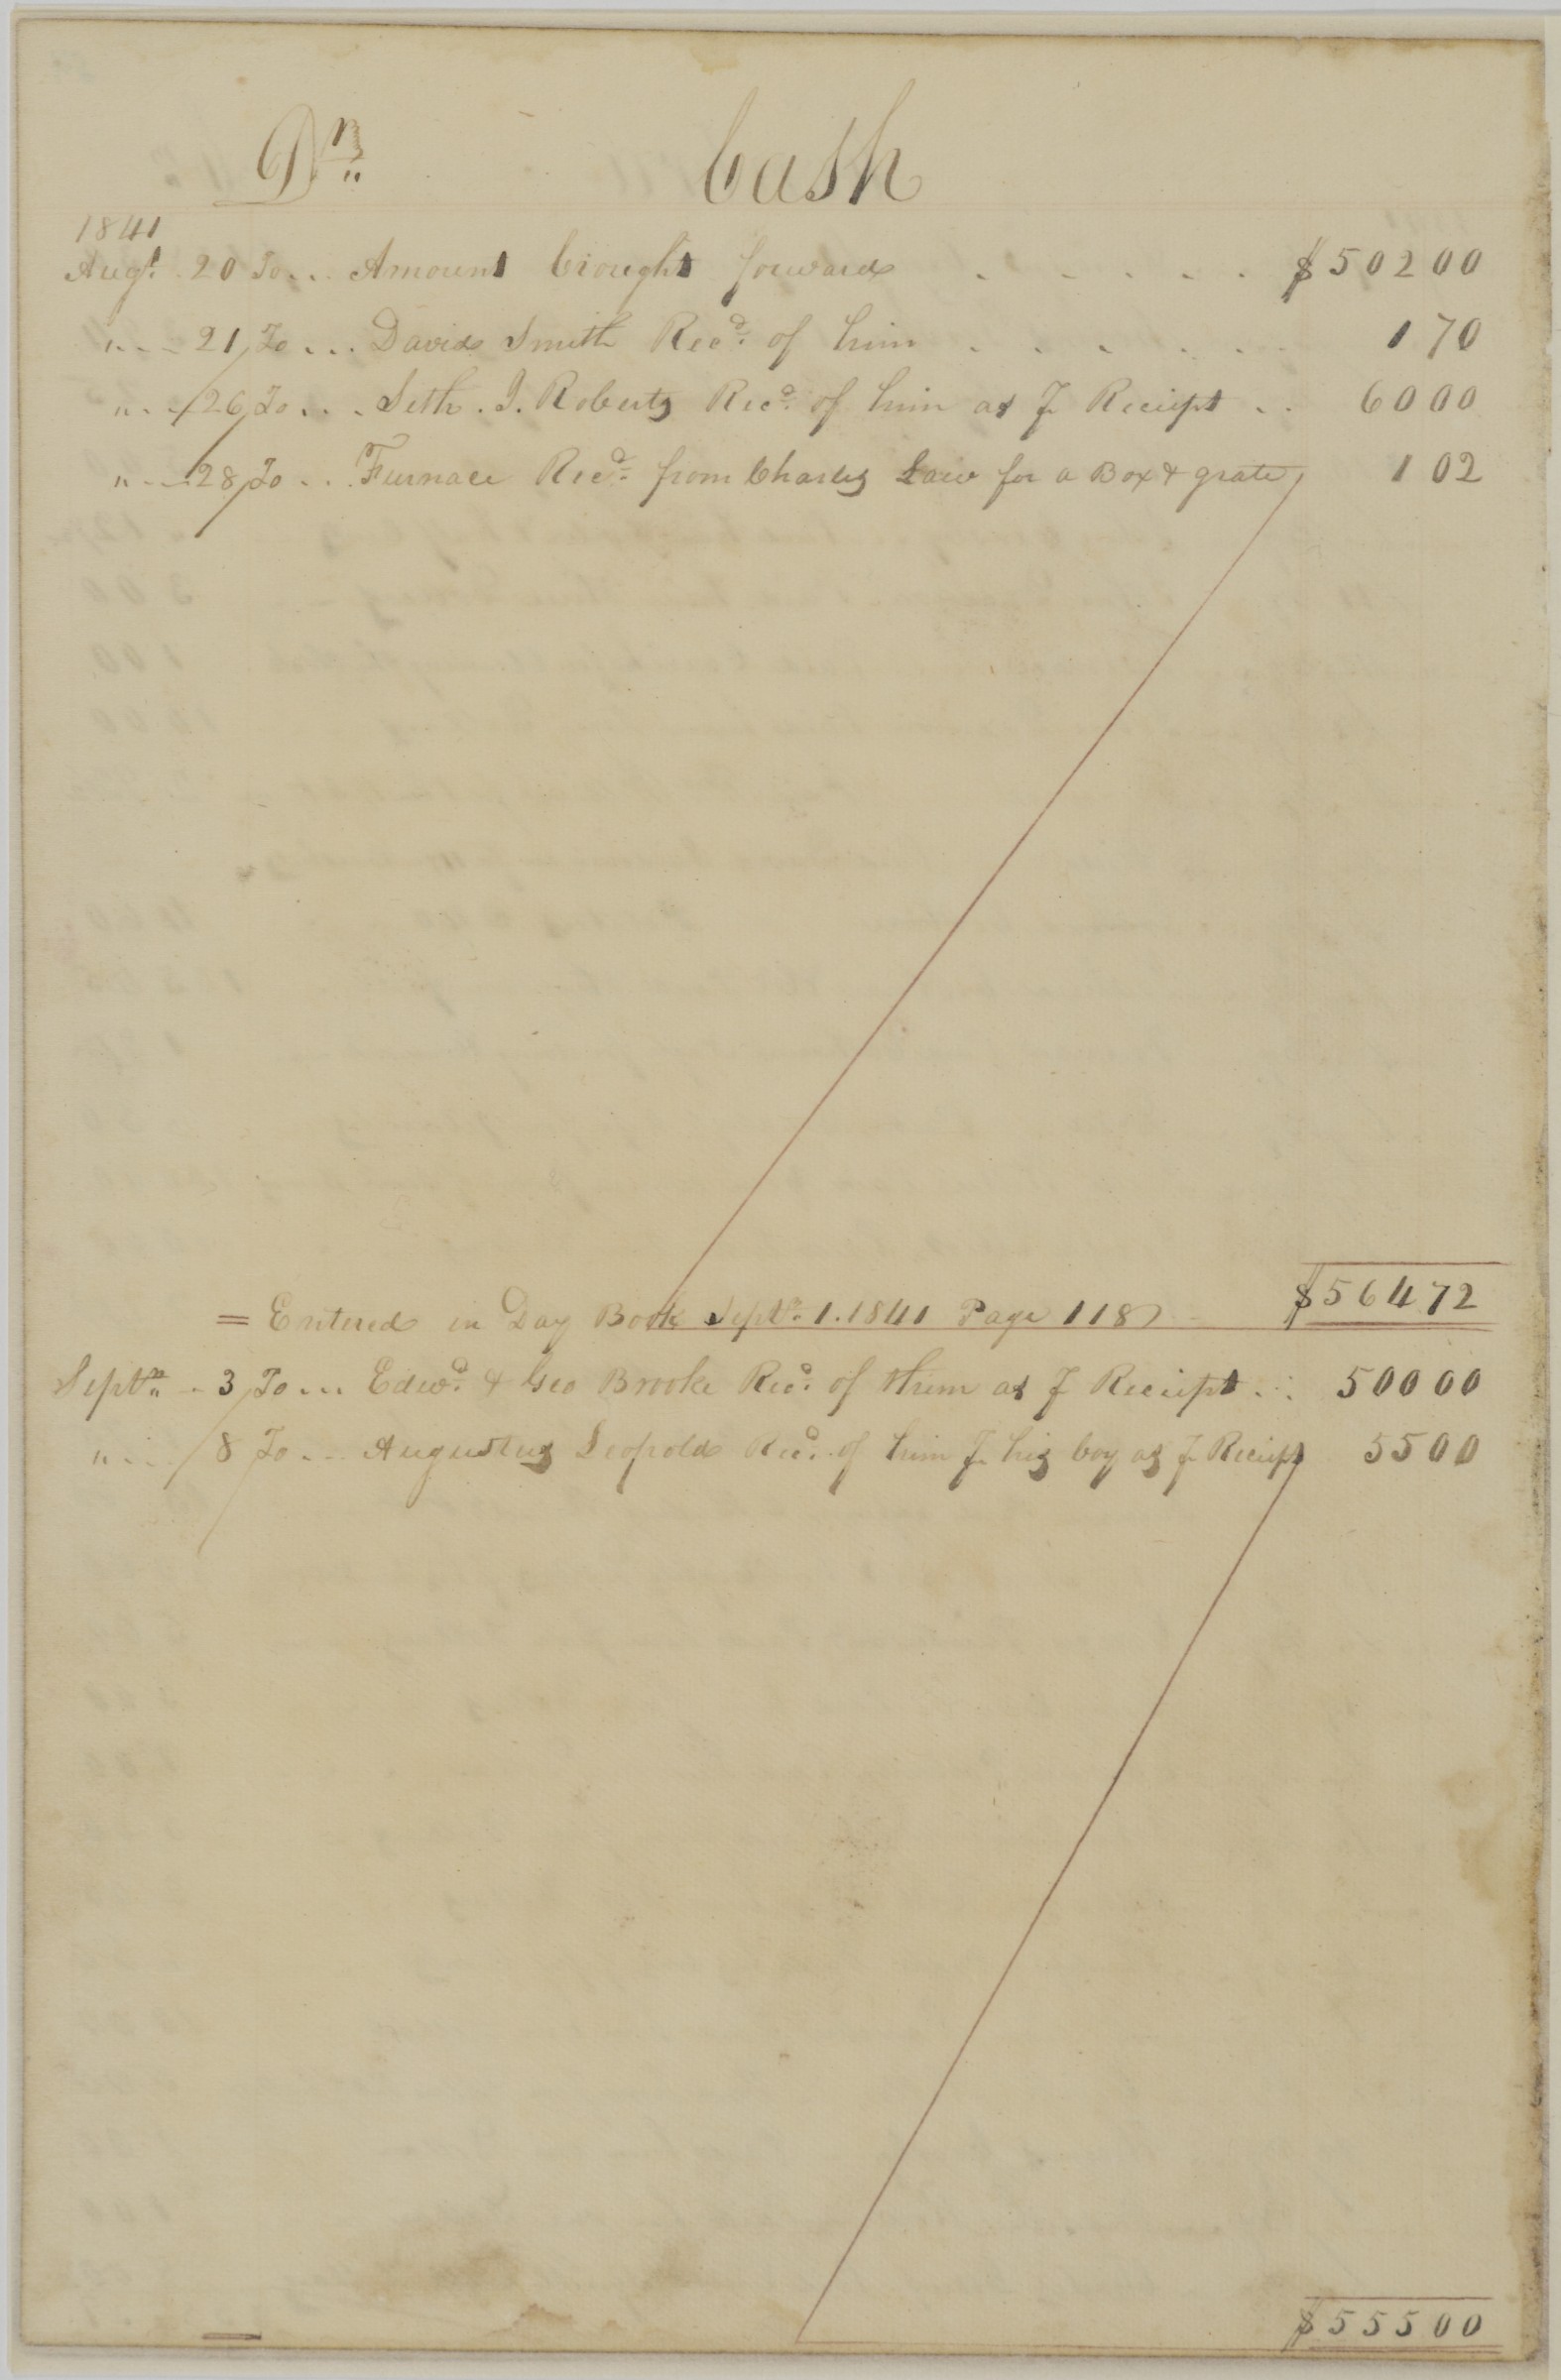 Dr. Cash
1841
Augt. 20 To... Amount brought forward . . . . . $ 502 00
" - - - 21 To ... David Smith Recd. of him . . . . . . 1 70
" - - - 26 To . . . Seth. I. Roberts Recd. of him as P Receipt . . 60 00
" - - - 28 To . . . Furnace Recd. from Charles Law for a Box & grate 1 02
$ 564 72
= Entered in Day Book Septr. 1. 1841 Page 118
Septr. - 3 To ... Edwd. & Geo Brooke Recd. of them as P Receipt . . . 500 00
" - - - 8 To ... Augustus Leopold Recd. of him P his boy as P Receipt 55 00
$ 555 00